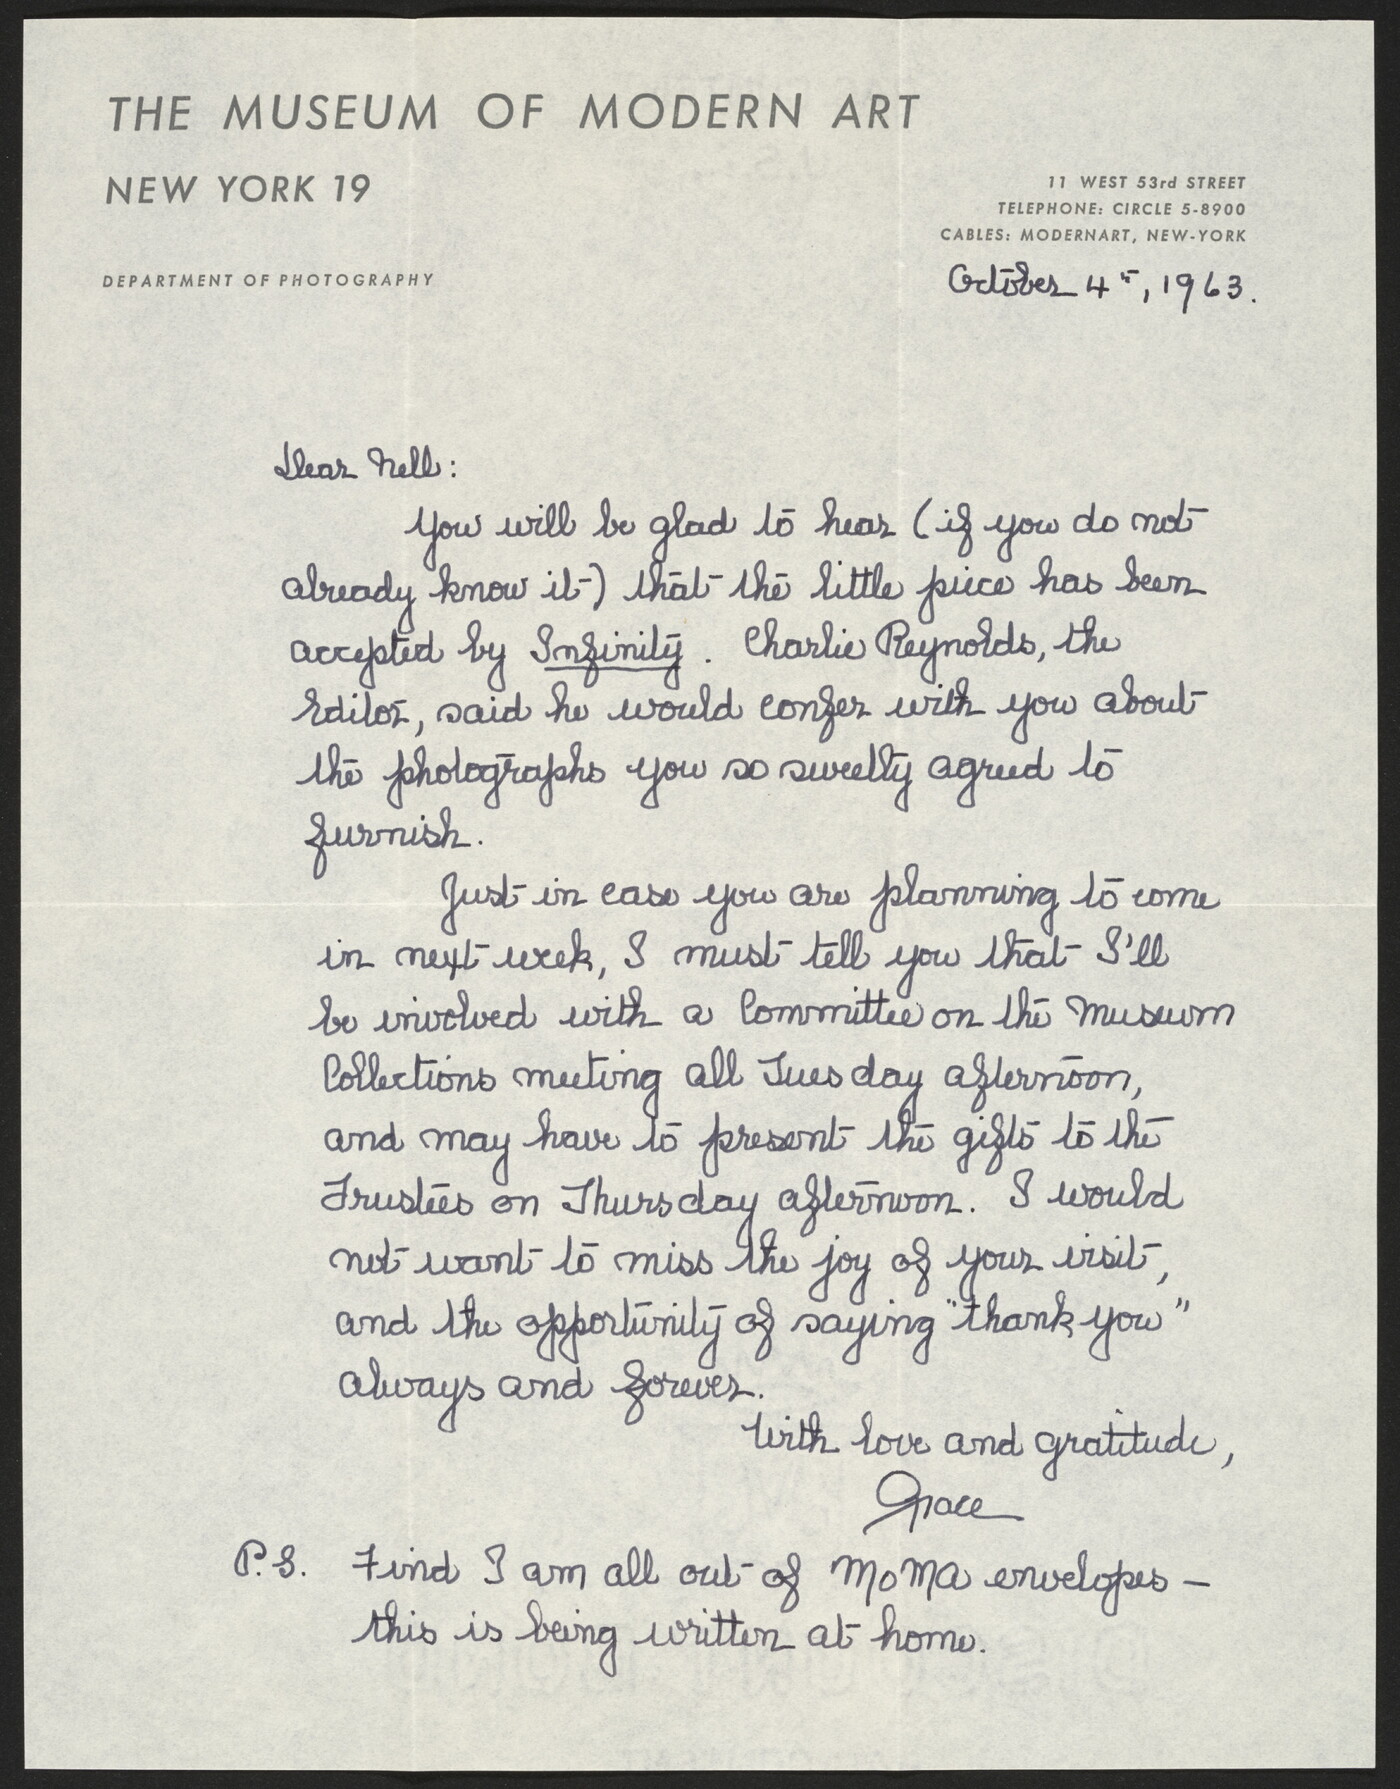 THE MUSEUM OF MODERN ART
NEW YORK 19
11 WEST 53rd STREET
TELEPHONE: CIRCLE 5-8900
CABLES: MODERNART, NEW-YORK
DEPARTMENT OF PHOTOGRAPHY
October 4th, 1963.
Dear Nell:
You will be glad to hear (if you do not
already know it) that the little piece has been
accepted by Infinity. Charlie Reynolds, the
Editor, said he would confer with you about
the photographs you so sweetly agreed to
furnish.
Just in case you are planning to come
in next week, I must tell you that I'll
be involved with a Committee on the Museum
Collections meeting all Tuesday afternoon,
and may have to present the gifts to the
Trustees on Thursday afternoon. I would
not want to miss the joy of your visit,
and the opportunity of saying "thank you"
always and forever.
With love and gratitude,
Grace
P.S. Find I am all out of MoMA envelopes —
this is being written at home.